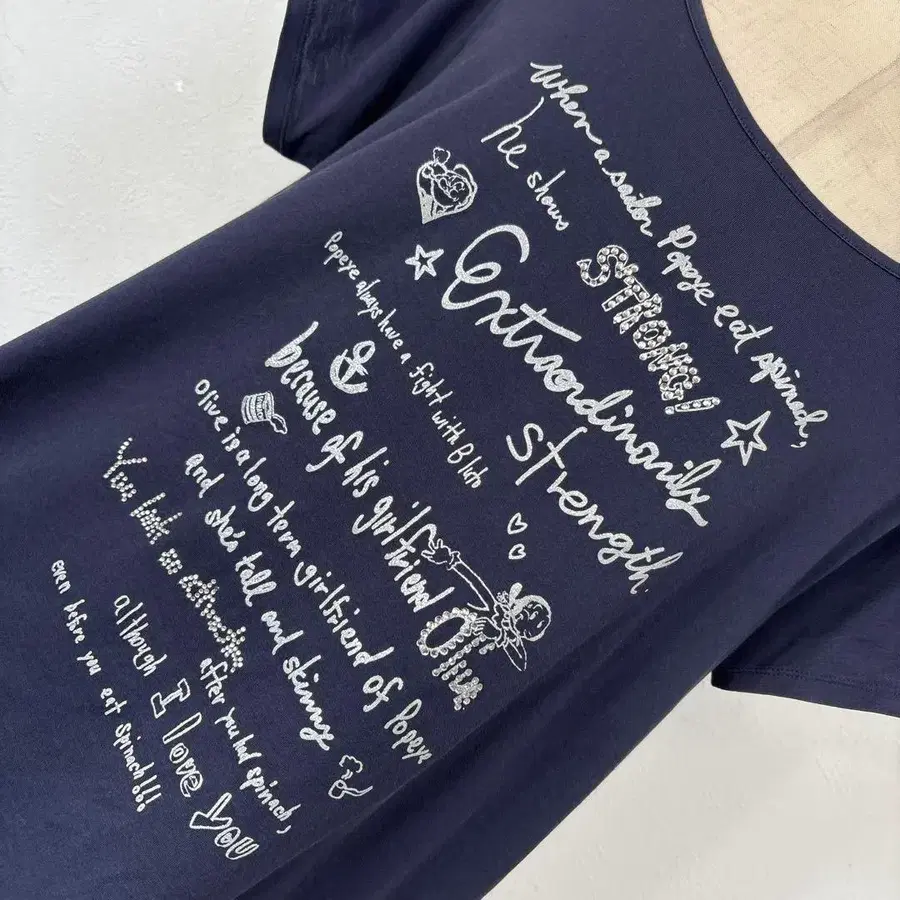 When a sailor Popeye eat spinach,
he shows STRONG!
Extraordinarily
strength.
Popeye always have a fight with Bluto
because of his girlfriend Olive
Olive is a long term girlfriend of Popeye
and she's tall and skinny
You look so after you had spinach,
although I love you
even before you eat Spinach!!!